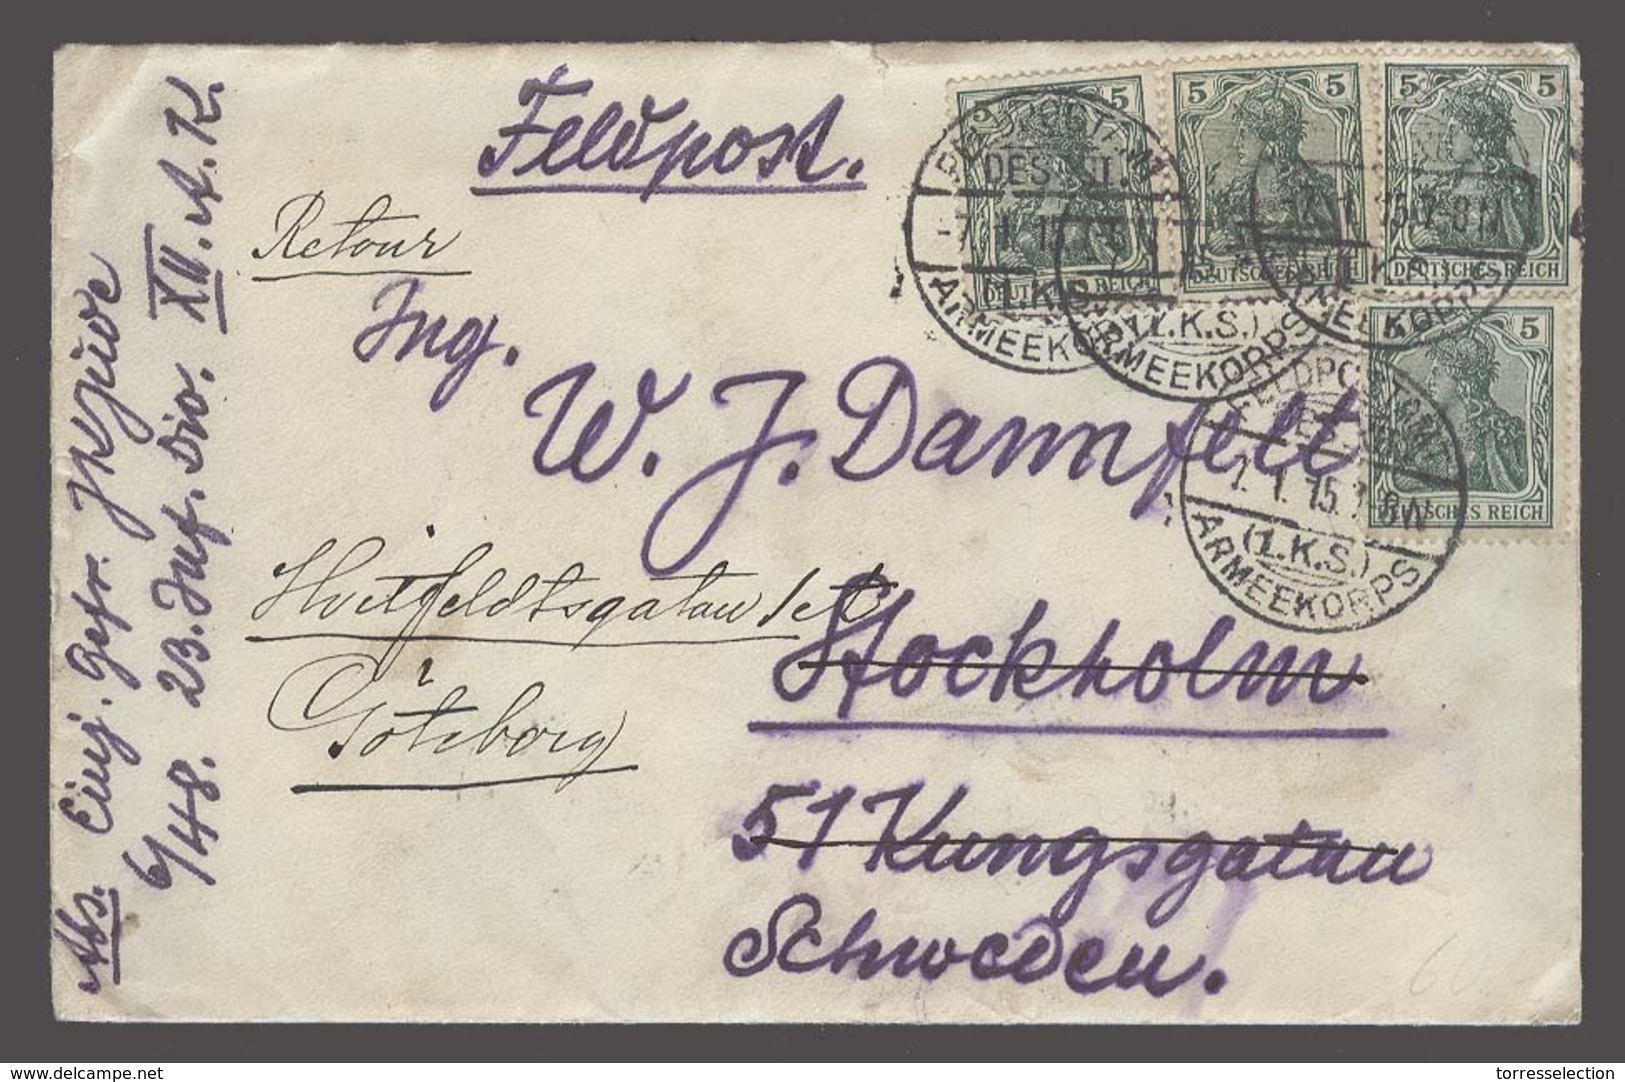 Feldpost.
Retour
Ing.
W. J. Dannfelt
Hvitfeldtsgatan
Stockholm
Göteborg
51 Kungsgatan
Schweden.
Abs. Einj. Gefr.
6/48. 23. Inf. Div. XII. A. K.
5 5
DEUTSCHES REICH
5 5
DEUTSCHES REICH
5 5
DEUTSCHES REICH
5
DEUTSCHES REICH
7. 1. 15.
(1.K.S.)
ARMEEKORPS
(1.K.S.)
ARMEEKORPS
delcampe.net
torresselection